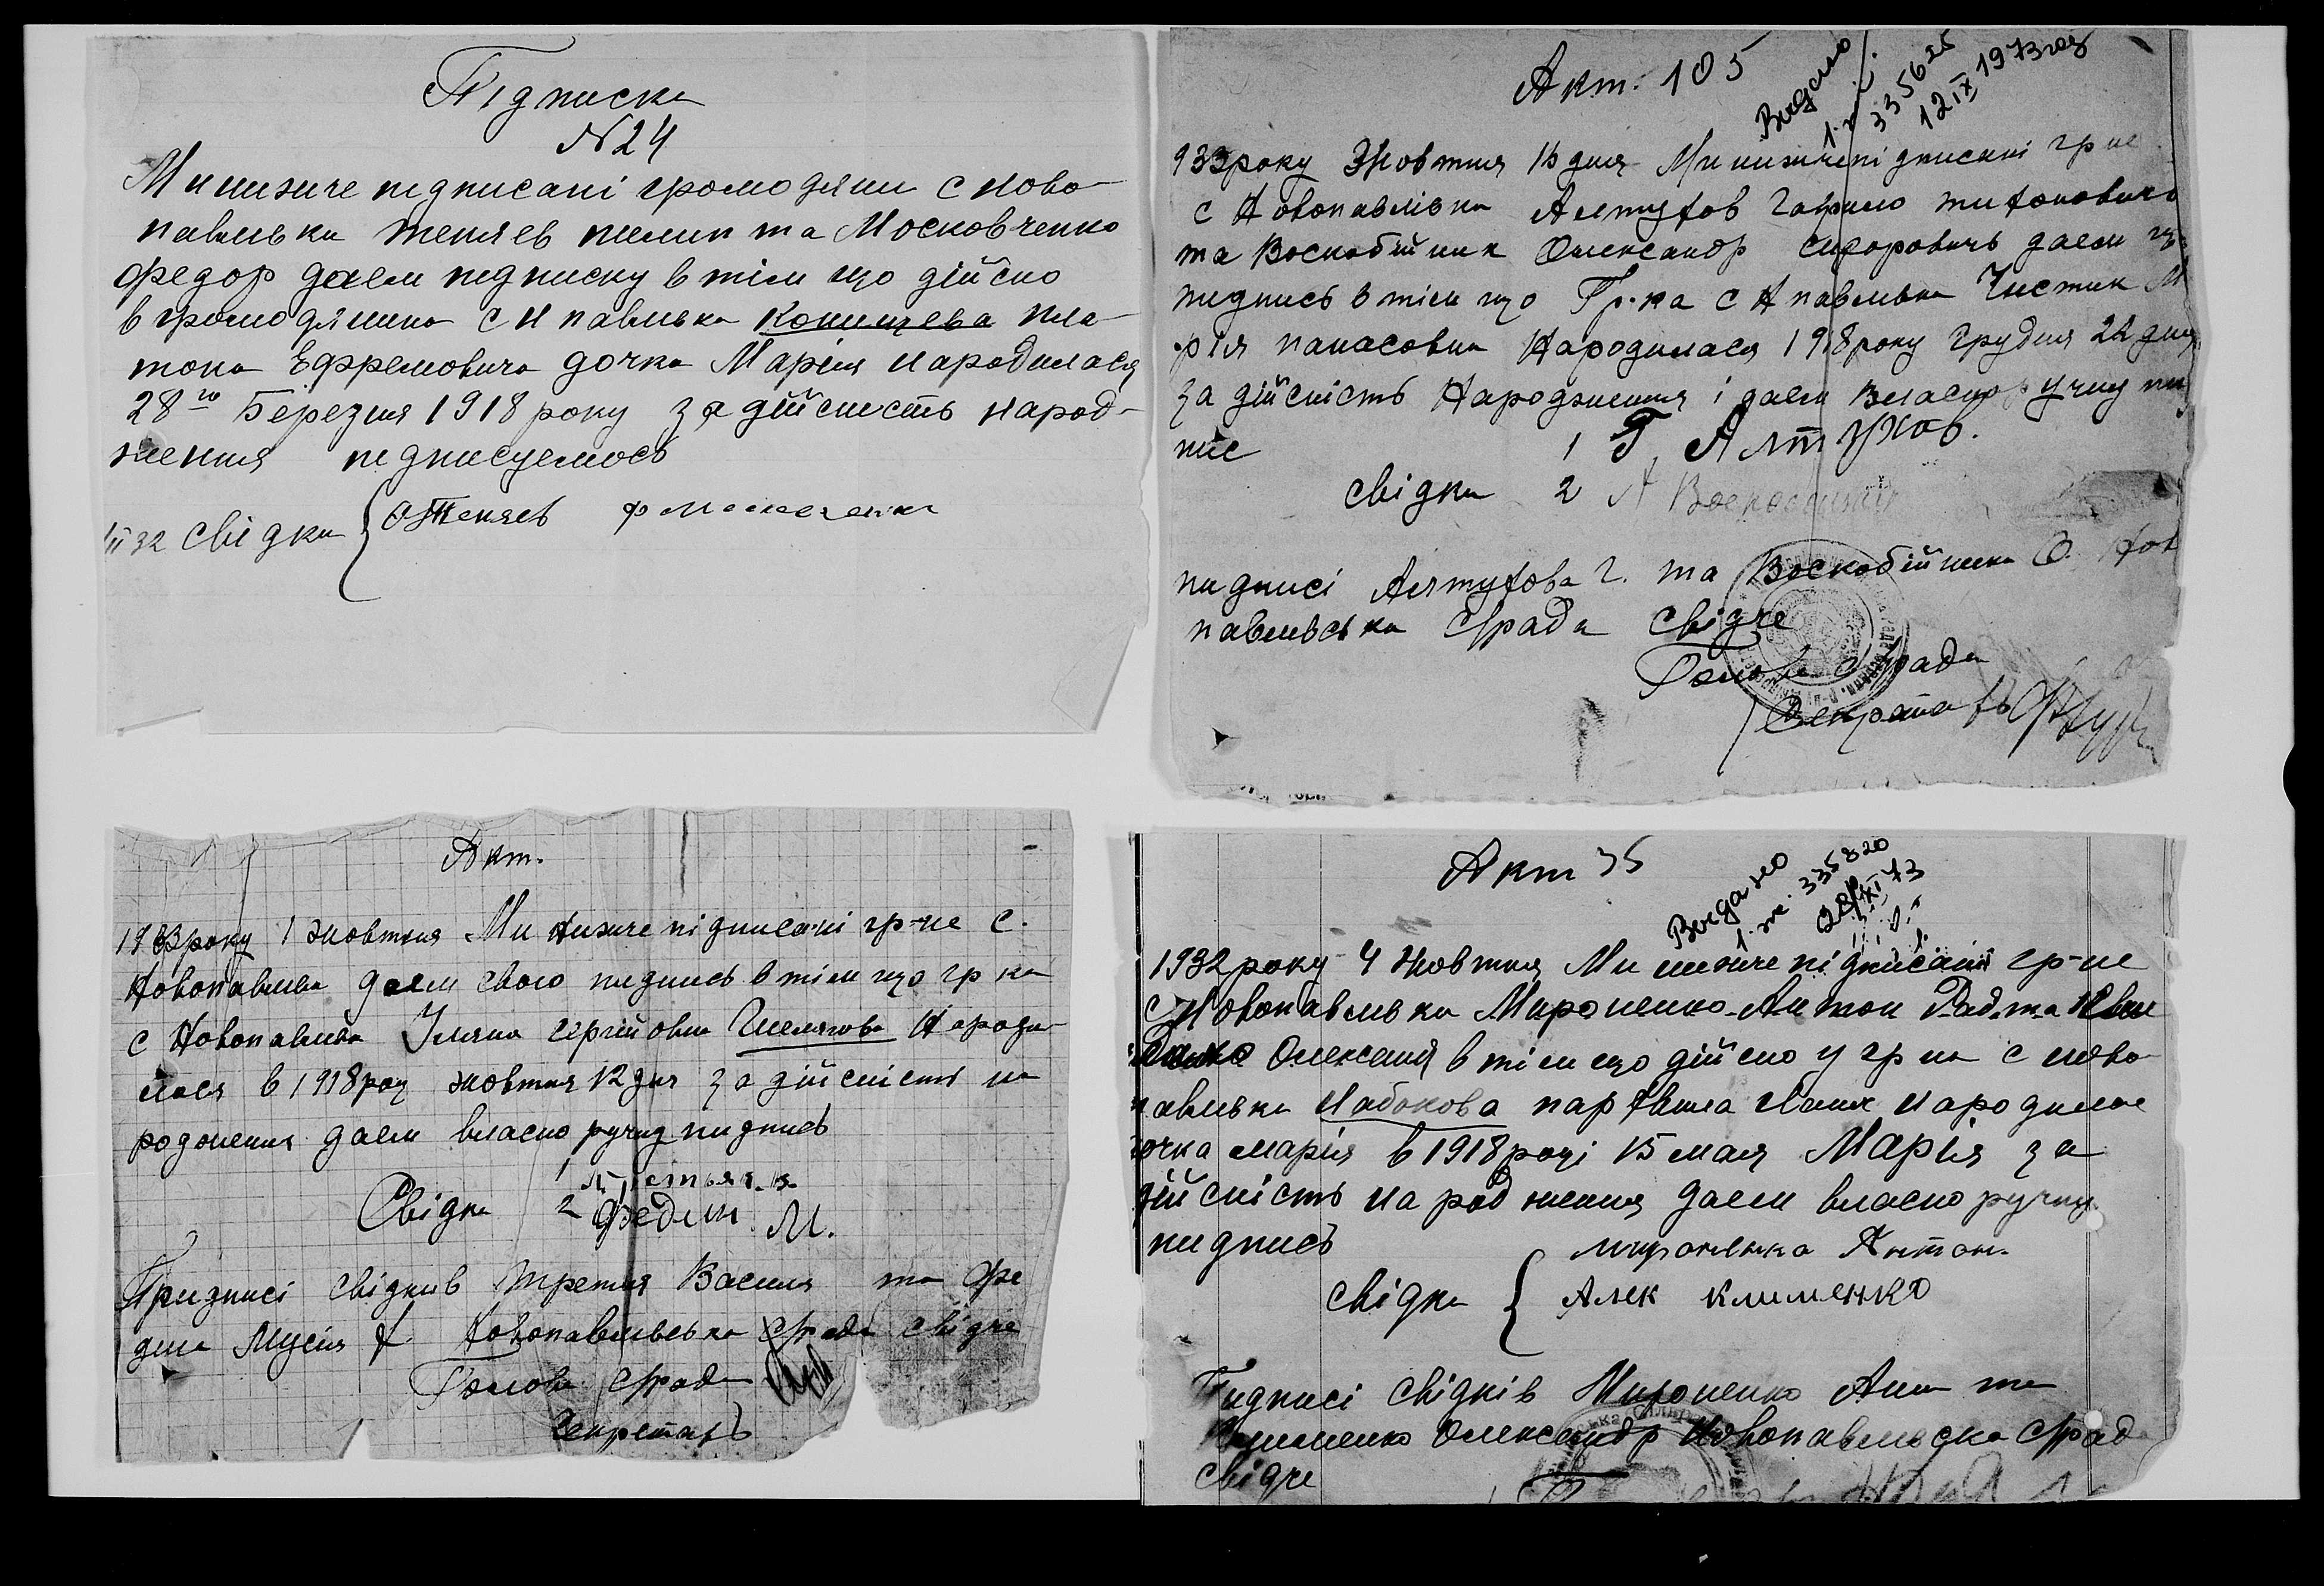 Підписка
N 24
Ми нижче підписані громодяни с ново
павлівки Тепляев пилип та Московченко
Федор даем підписку в тім що дійсно
в громодянина с Н павлівка Конищева Пла
тона Ефремовича дочка Марія народилася
28го Березня 1918 року за дійсність народ-
ження підписуемось
32 свідки
Акт. 105
Видано
335625
12 IX 1973 год
933 року Жовтня 16 дня Ми нижчепідписані гр не
с Новопавлівки Алтухов Гаврило титонович
та Воскобійник Олександр сидорович даем
підпись в тім що Гр.ка с Н павлівка Чистик М
рія панасовна Народилася 1918 року Грудня 22 дня
за дійсність Народження і даем Власноручну під
пис 1 Г Алтухов.
свідки 2 А
підписі Алтухова Г. та Воскобійника О. Нов
павлівська с/рада свідче
Голова с/рада
Секретарь
Акт.
1933 року 1 жовтня Ми Нижче підписані гр-не с.
Новопавлівки даем свою підпись в тім що гр ка
с Новопавлівка Уляна сергійовна Шелягова Народи
лася в 1918 році жовтня 12 дня за дійсність на
родження даем власноручну підпись
1
Свідки 2 Федин М.
Придписі свідків Третяя Василя та Фе
дина Мусія Новопавлівська с/рада свідче
Голова с/рада
Секретарь
Акт 35
Видано
335820
73
1932 року 4 жовтня Ми нижче підписані гр-не
с Новопавлівки Мироненко Антон та
Олексаня в тім що дійсно у гр на с ново
павлівки Набокова народилас
дочка марія в 1918 році 15 мая Марія за
дійсність народження даем власноручну
підпись мироненко Антон
свідки Алек клименко
Підписі свідків Мироненко Анн та
Клименко Олександр Новопавлівска с/рада
свідче